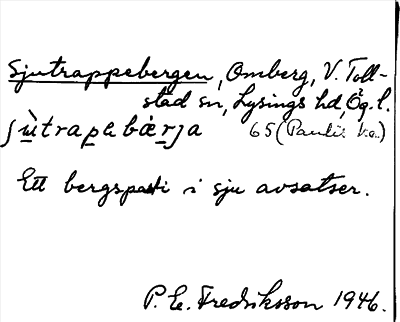 Sjutrappebergen, Omberg, V. Toll-
stad sn, Lysings hd, Ög. l.
ʃu̠̇trap̠ebȧr̠ja 65 (Pauli: ka.)
Ett bergsparti i sju avsatser.
P. E. Fredriksson 1946.